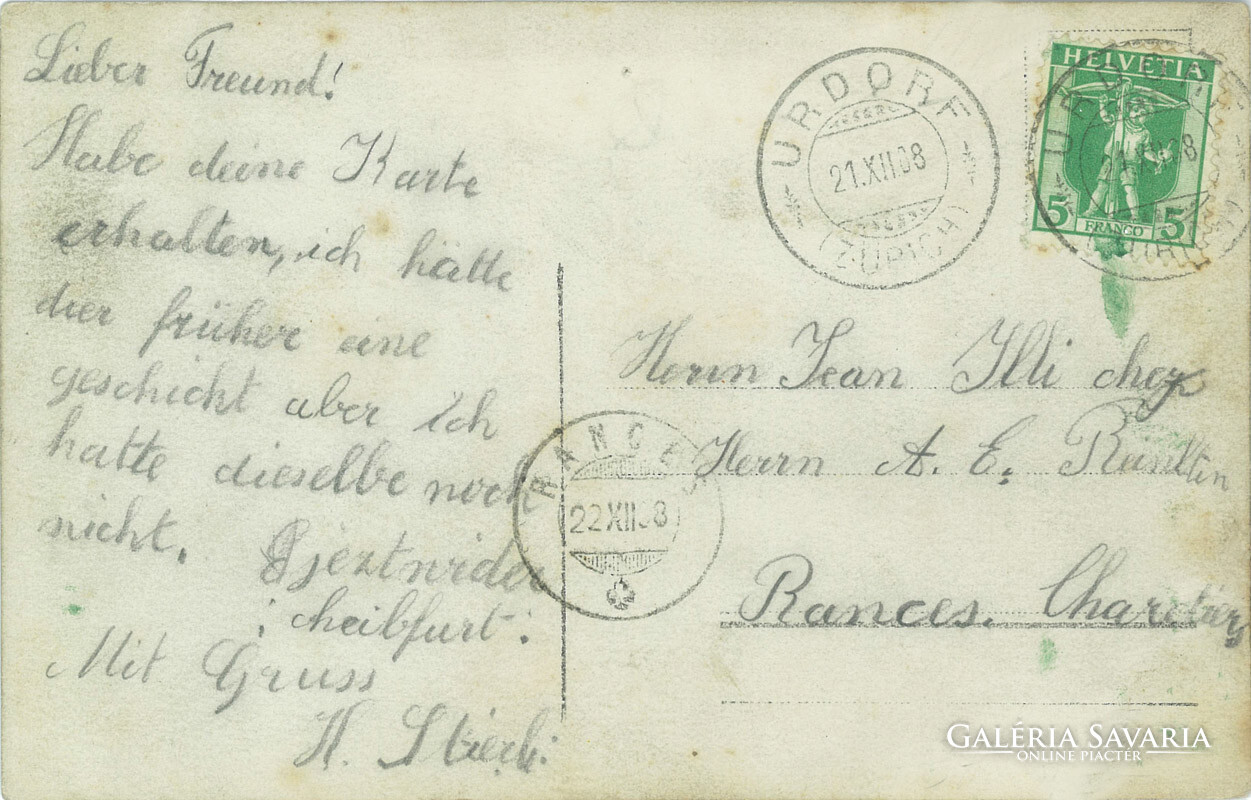 Lieber Freund!
Habe deine Karte
erhalten, ich hätte
dier früher eine
geschickt aber ich
hatte dieselbe noch
nicht.
Mit Gruss
H.
URDORF
21.XII.08
(ZÜRICH)
HELVETIA
5 FRANCO 5
URDORF
(ZÜRICH)
Herrn Jean Illi chez
Herrn A. E.
Rances.
RANCES
22 XII 08
GALÉRIA SAVARIA
ONLINE PIACTÉR